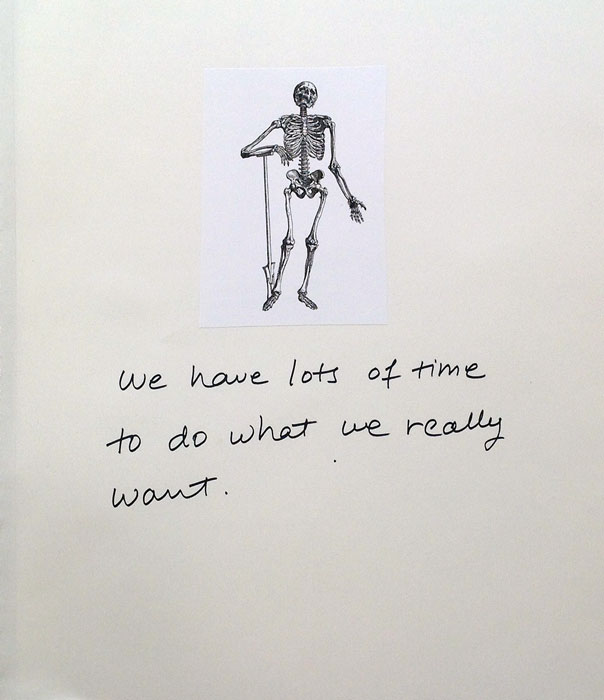 we have lots of time
to do what we really
want.